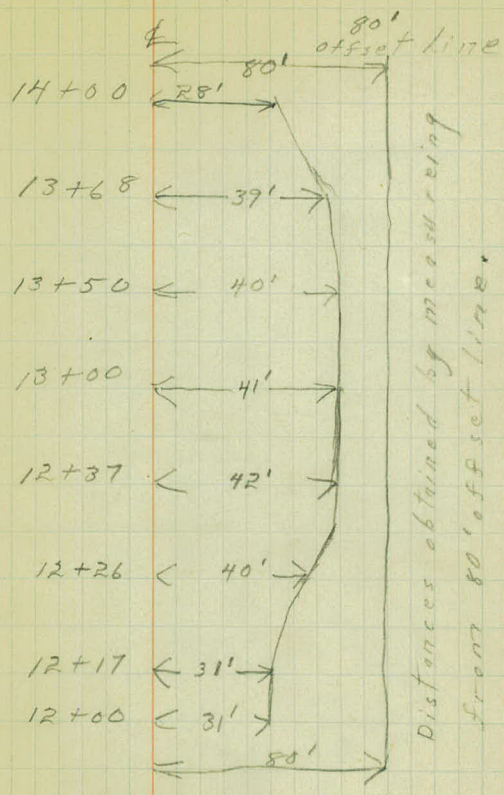 ℄
80'
offset line
80'
14+00 28'
13+68 39'
13+50 40'
13+00 41'
12+37 42'
12+26 40'
12+17 31'
12+00 31'
80'
Distances obtained by measuring
from 80' offset line.